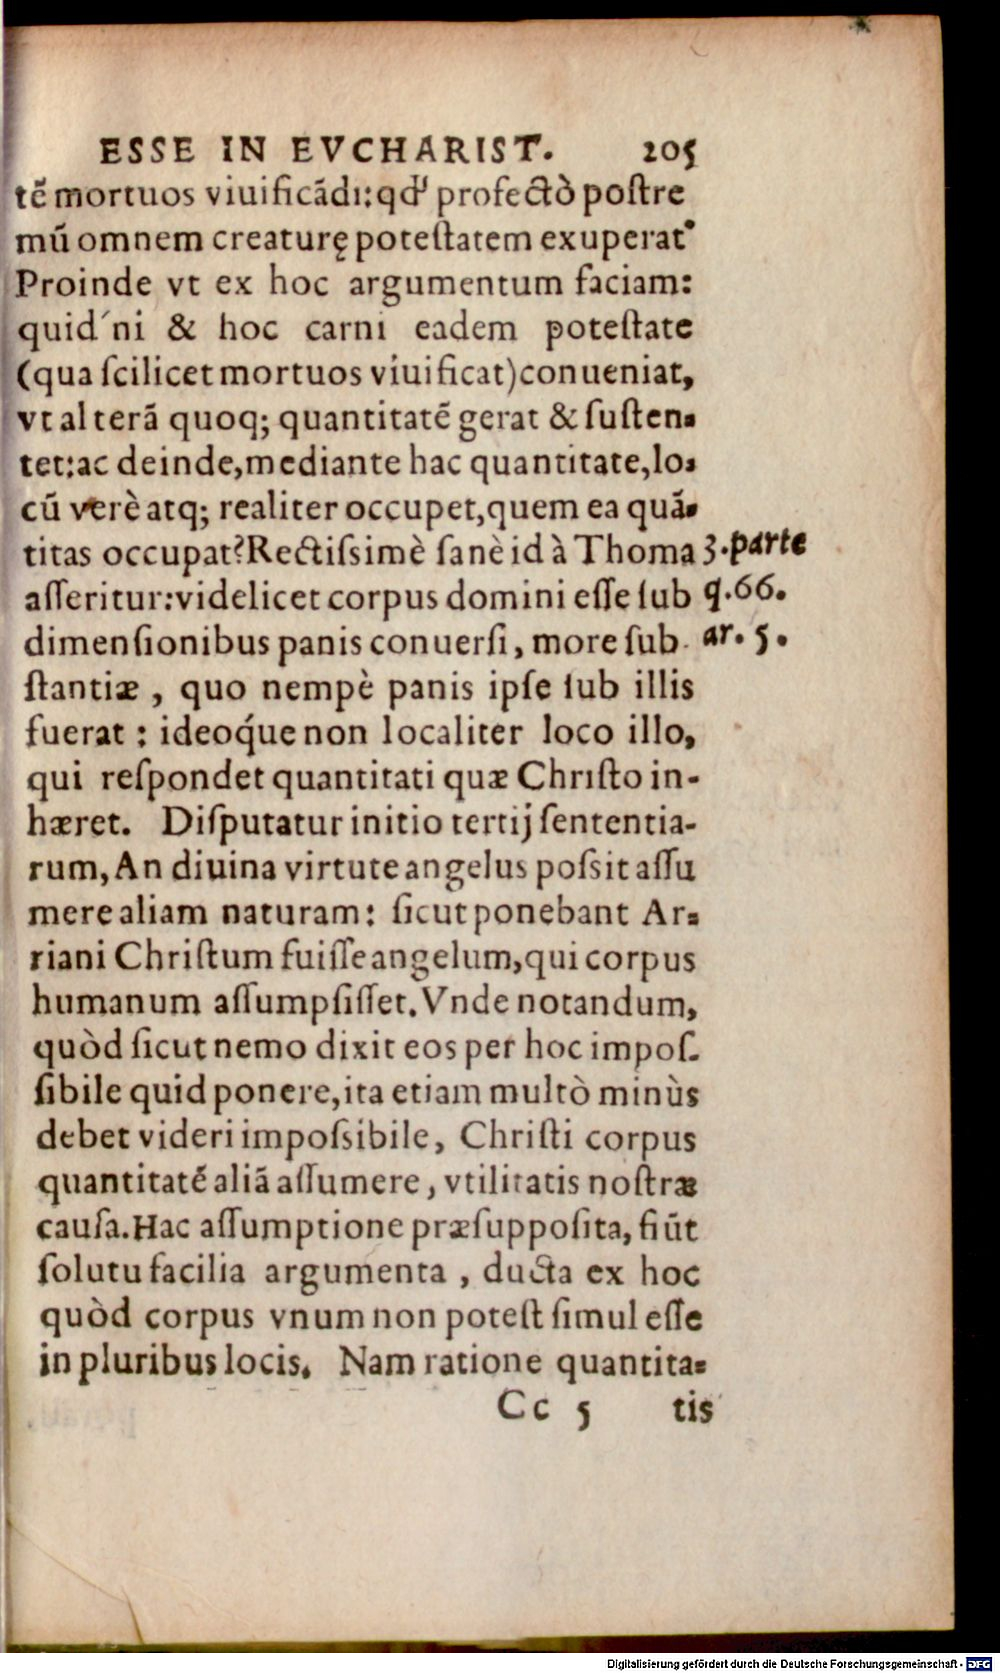 ESSE IN EVCHARIST. 205
tẽ mortuos viuificãdi: qđ profectò postre
mũ omnem creaturę potestatem exuperat.
Proinde vt ex hoc argumentum faciam:
quid´ni & hoc carni eadem potestate
(qua scilicet mortuos viuificat) conueniat,
vt alterã quoq; quantitatẽ gerat & susten-
tet: ac deinde, mediante hac quantitate, lo-
cũ verè atq; realiter occupet, quem ea quã-
titas occupat? Rectissimè sanè id à Thoma 3. parte
asseritur: videlicet corpus domini esse sub q. 66.
dimensionibus panis conuersi, more sub ar. 5.
stantiæ, quo nempè panis ipse sub illis
fuerat: ideoq́ue non localiter loco illo,
qui respondet quantitati quæ Christo in-
hæret. Disputatur initio tertij sententia-
rum, An diuina virtute angelus possit assu
mere aliam naturam: sicut ponebant Ar-
riani Christum fuisse angelum, qui corpus
humanum assumpsisset. Vnde notandum,
quòd sicut nemo dixit eos per hoc impos-
sibile quid ponere, ita etiam multò minùs
debet videri impossibile, Christi corpus
quantitatẽ aliã assumere, vtilitatis nostræ
causa. Hac assumptione præsupposita, fiũt
solutu facilia argumenta, ducta ex hoc
quòd corpus vnum non potest simul esse
in pluribus locis. Nam ratione quantita-
Cc 5 tis
Digitalisierung gefördert durch die Deutsche Forschungsgemeinschaft - DFG